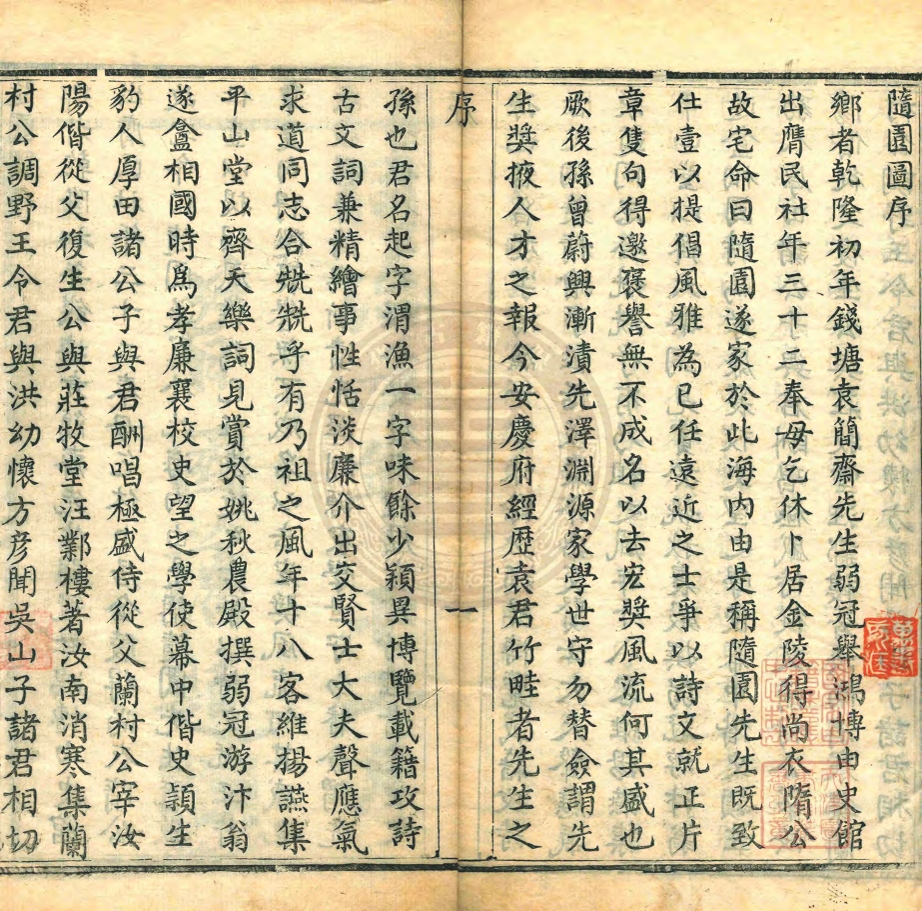 隨園圖序
鄉者乾隆初年錢塘袁簡齋先生弱冠舉鴻博由史館
出膺民社年三十二奉母乞休卜居金陵得尚衣隋公
故宅命曰隨園遂家於此海內由是稱隨園先生既致
仕壹以提倡風雅為已任遠近之士爭以詩文就正片
章隻句得邀褒譽無不成名以去宏獎風流何其盛也
厥後孫曾蔚興漸漬先澤淵源家學世守勿替僉謂先
生獎掖人才之報今安慶府經歷袁君竹畦者先生之
序 一
孫也君名起字渭漁一字味餘少穎異博覽載籍攻詩
古文詞兼精繪事性恬淡廉介出交賢士大夫聲應氣
求道同志合兟兟乎有乃祖之風年十八客維揚讌集
平山堂以齊天樂詞見賞於姚秋農殿撰弱冠游汴翁
遂盦相國時爲孝廉襄校史望之學使幕中偕史穎生
豹人厚田諸公子與君酬唱極盛侍從父蘭村公宰汝
陽偕從父復生公與莊牧堂汪酇樓著汝南消寒集蘭
村公調野王令君與洪幼懷方彥聞吳山子諸君相切